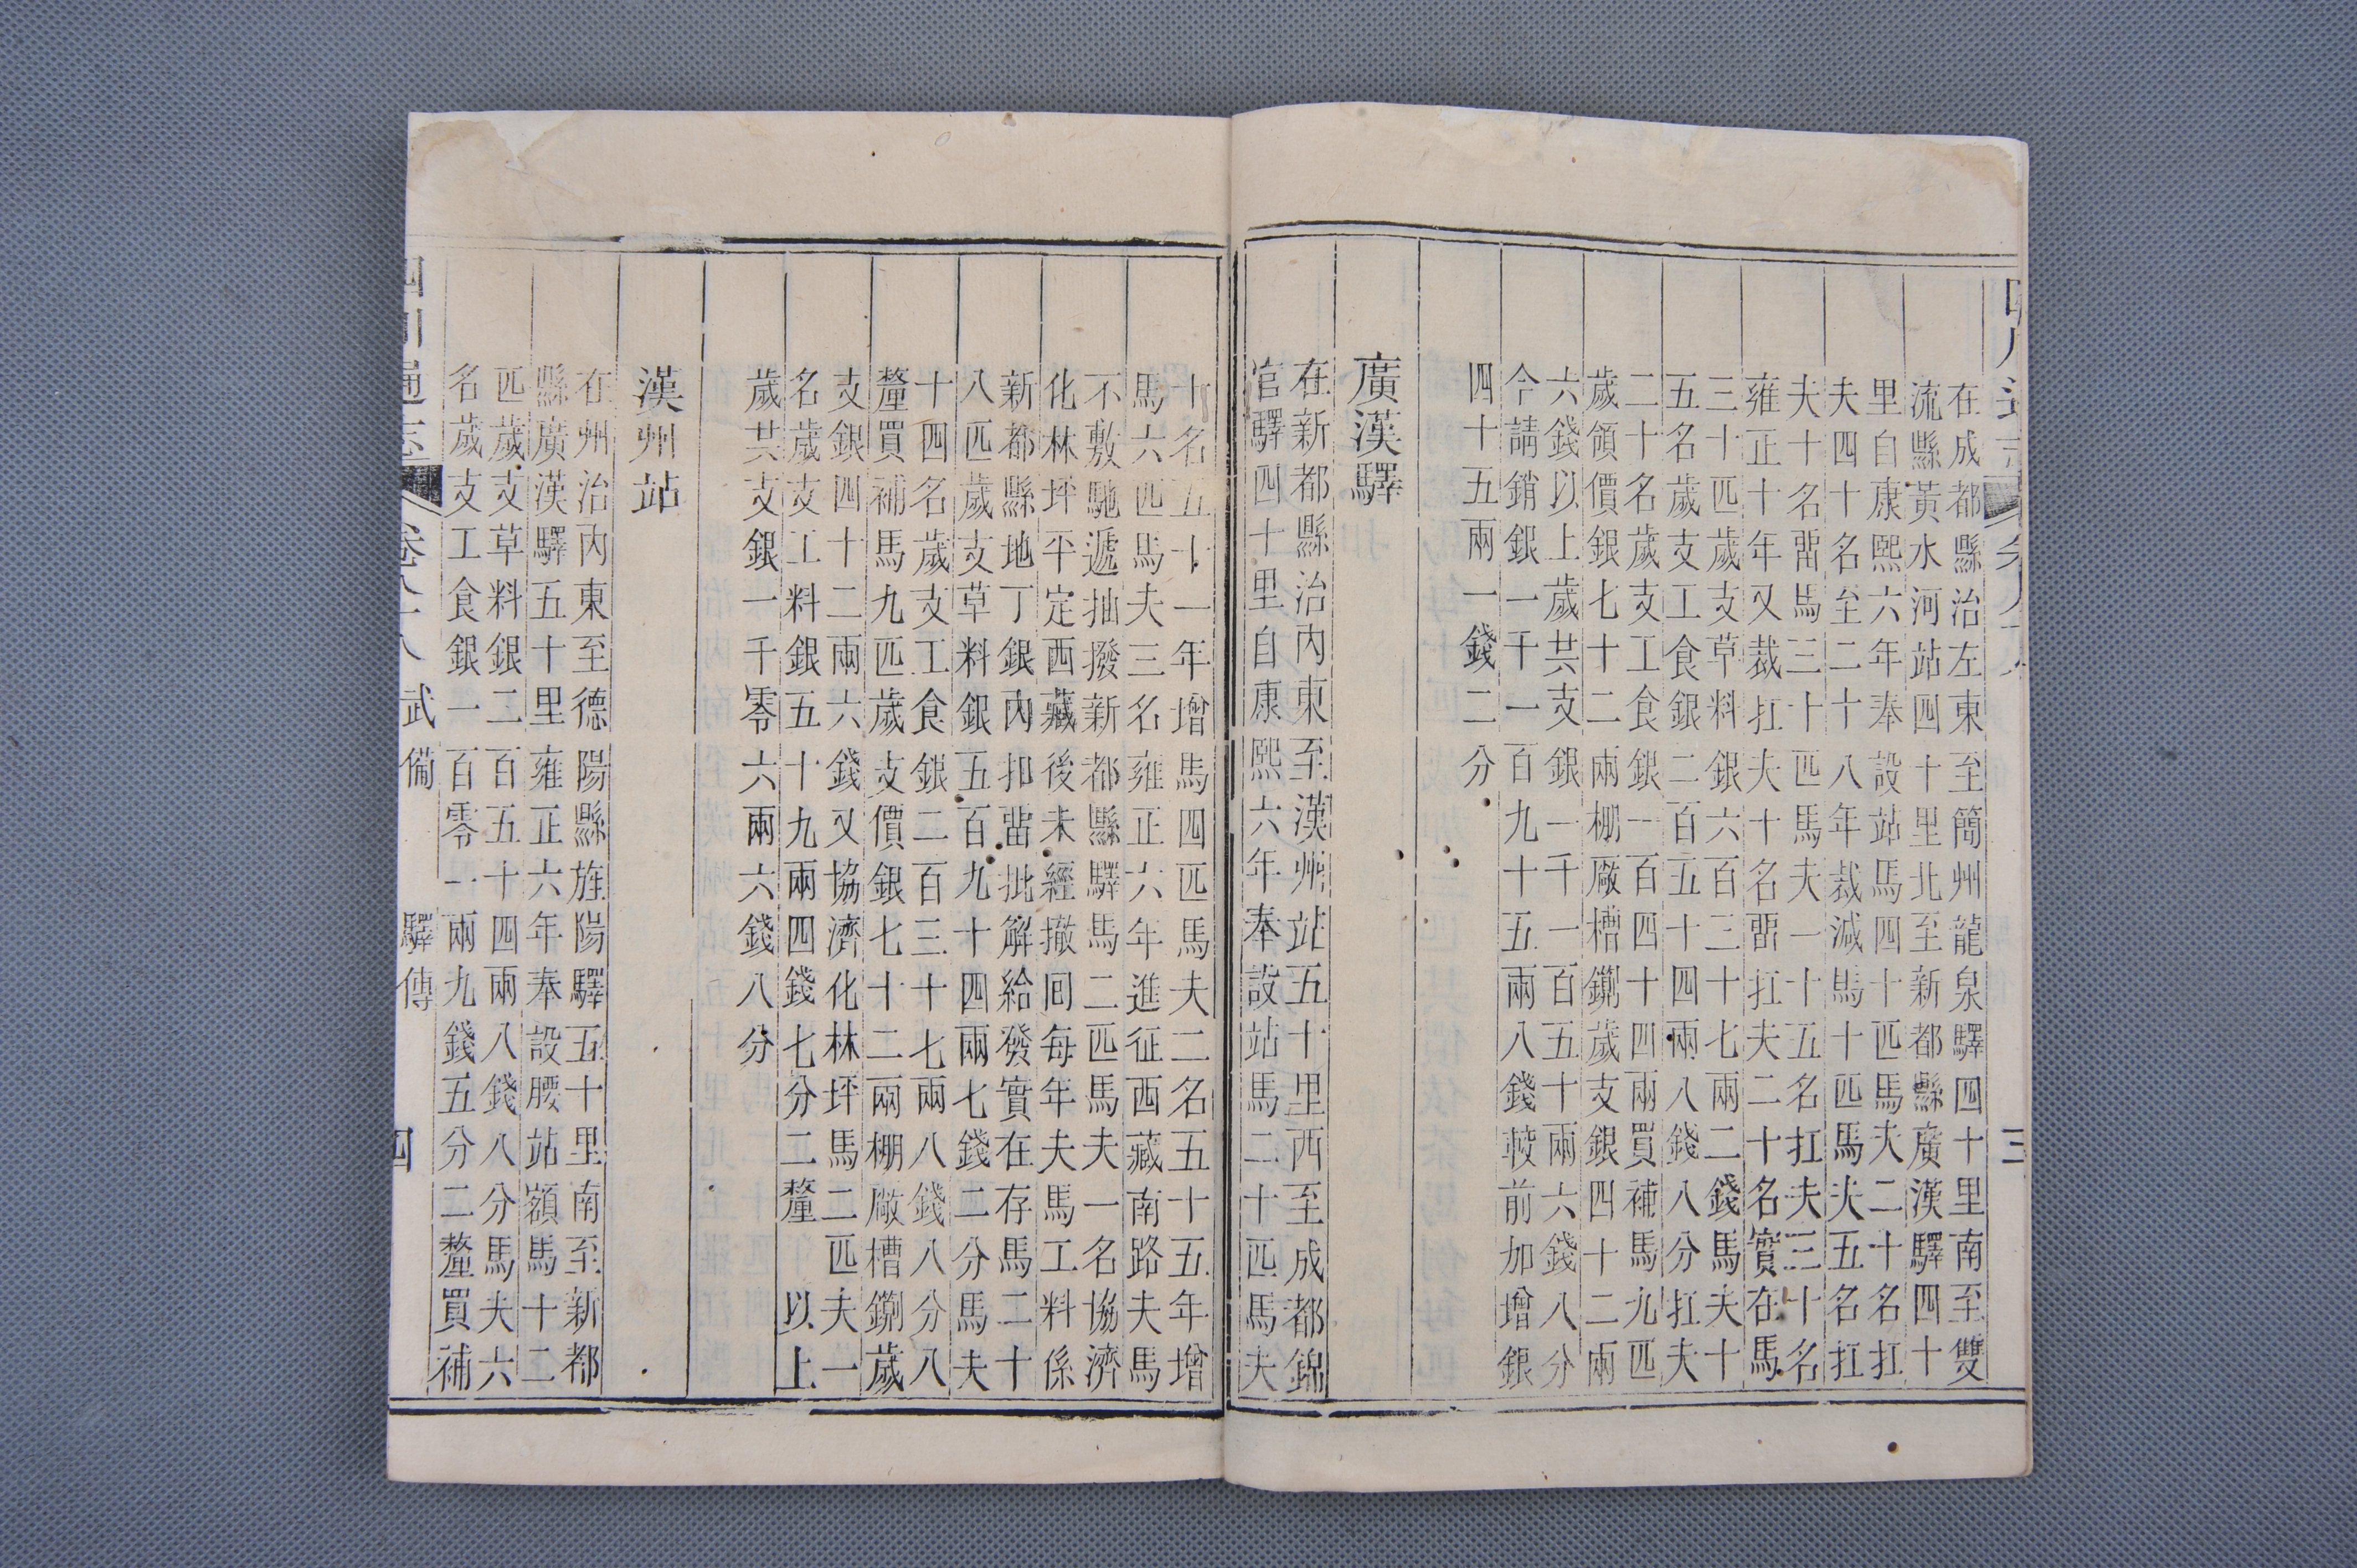 在成都縣治左東至簡州龍泉驛四十里南至雙
流縣黃水河站四十里北至新都縣廣漢驛四十
里自康熙六年奉設站馬四十匹馬夫二十名扛
夫四十名至二十八年裁減馬十匹馬夫五名扛
夫十名畱馬三十匹馬夫一十五名扛夫三十名
雍正十年又裁扛夫十名畱扛夫二十名實在馬
三十匹歲支草料銀六百三十七兩二錢馬夫十
五名歲支工食銀二百五十四兩八錢八分扛夫
二十名歲支工食銀一百四十四兩買補馬九匹
歲領價銀七十二兩棚廠槽鍘歲支銀四十二兩
六錢以上歲共支銀一千一百五十兩六錢八分
今請銷銀一千一百九十五兩八錢較前加增銀
四十五兩一錢二分
廣漢驛
在新都縣治內東至漢州站五十里西至成都錦
官驛四十里自康熙六年奉設站馬二十匹馬夫
十名五十一年增馬四匹馬夫二名五十五年增
馬六匹馬夫三名雍正六年進征西藏南路夫馬
不敷馳遞抽撥新都縣驛馬二匹馬夫一名協濟
化林坪平定西藏後未經撤囘每年夫馬工料係
新都縣地丁銀內扣畱批解給發實在存馬二十
八匹歲支草料銀五百九十四兩七錢二分馬夫
十四名歲支工食銀二百三十七兩八錢八分八
釐買補馬九匹歲支價銀七十二兩棚廠槽鍘歲
支銀四十二兩六錢又協濟化林坪馬二匹夫一
名歲支工料銀五十九兩四錢七分二釐以上
歲共支銀一千零六兩六錢八分
漢州站
在州治內東至德陽縣旌陽驛五十里南至新都
縣廣漢驛五十里雍正六年奉設腰站額馬十二
匹歲支草料銀二百五十四兩八錢八分馬夫六
名歲支工食銀一百零一兩九錢五分二釐買補
四川通志 卷八十八 武備 驛傳 四